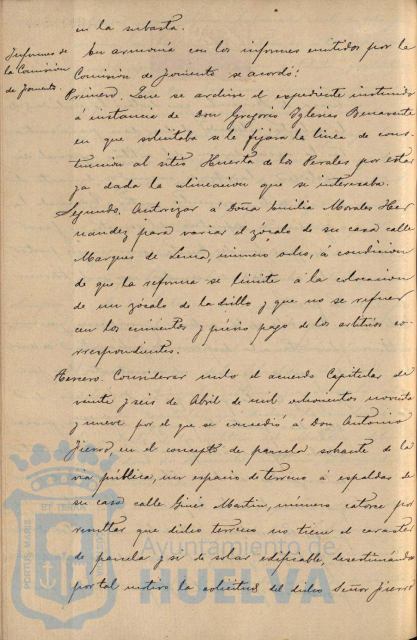 en la subasta.
Informes de
la Comisión
de fomento.
En armonía con los informes emitidos por la
Comisión de fomento se acordó:
Primero. Que se archive el expediente instruido
á instancia de Don Gregorio Iglesias Benavente
en que solicitaba se le fijara la línea de cons-
trucción al sitio Huerta de los Perales por estar
ya dada la alineacion que se interesaba.
Segundo. Autorizar á Doña Emilia Morales Her-
nandez para variar el zócalo de su casa calle
Marques de Lema, número ocho, á condicion
de que la reforma se limite á la colocacion
de un zócalo de ladrillo y que no se refuer
cen los cimientos y previo pago de los arbitrios co-
rrespondientes.
Tercero. Considerar nulo el acuerdo Capitular de
veinte y seis de Abril de mil ochocientos noventa
y nueve por el que se concedió á Don Antonio
Fierro, en el concepto de parcela sobrante de la
via pública, un espacio de terreno á espaldas de
su casa calle Ginés Martin, número catorce por
resultar que dicho terreno no tiene el caracter
de parcela y si de solar edificable, desestimándo
por tal motivo la solicitud del dicho Señor Fierro
PORTUS MARIS
Ayuntamiento de
HUELVA